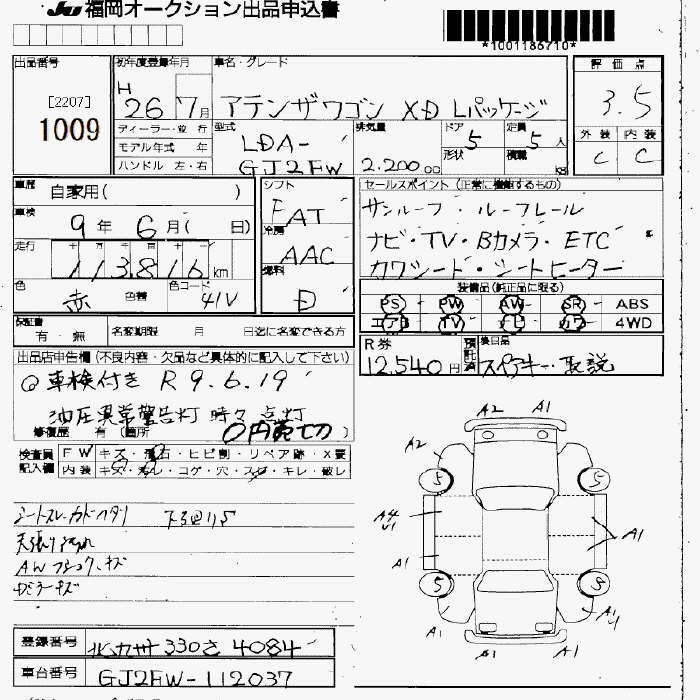 JU 福岡オークション出品申込書
*1001186710*
出品番号
[2207]
1009
初年度登録年月
H 26 7月
車名・グレード
アテンザワゴン XD Lパッケージ
評価点
3.5
外装 内装
C C
ディーラー・並行
モデル年式 年
ハンドル 左・右
型式
LDA-
GJ2FW
排気量
2.200 cc
ドア 5
形状
定員 5人
積載 KG
車歴
自家用( )
車検
9年 6月( 日)
走行
113,816 km
色
赤 色替
色コード
41V
シフト
FAT
冷房
AAC
燃料
D
セールスポイント (正常に機能するもの)
サンルーフ・ルーフレール
ナビ・TV・Bカメラ・ETC
カワシート・シートヒーター
装備品(純正品に限る)
PS PW AW SR ABS
エアB TV ナビ カワ 4WD
保証書
有・無
名変期限 月 日迄に名変できる方
R券
12,540円
預託済
後日品
スペアキー・取説
出品店申告欄 (不良内容・欠品など具体的に記入して下さい)
◎車検付き R9.6.19
油圧異常警告灯 時々点灯
修復歴 有 (箇所 )
0円売切
検査員記入欄
FW キズ・飛石・ヒビ割・リペア跡・X要
内装 キズ・汚レ・コゲ・穴・スレ・キレ・破レ
天張り汚れ
AWフジック、キズ
A2 A1
A2
5 5
A4
A1
A1
A1
5 5
A1
A1 A1
登録番号
330さ 4084
車台番号
GJ2FW-112037